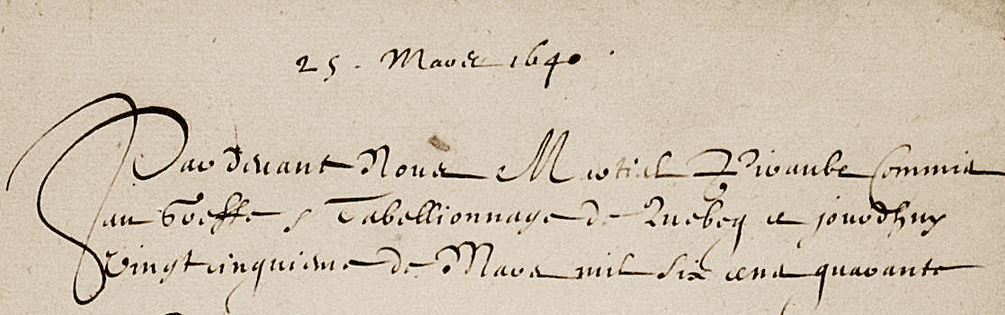 25. Mars 1640
Pardevant Nous Martial Piraube Commis
au Greffe & Tabellionnage de Quebeq ce jourdhuy
Vingt cinquiesme de Mars mil six cens quarante